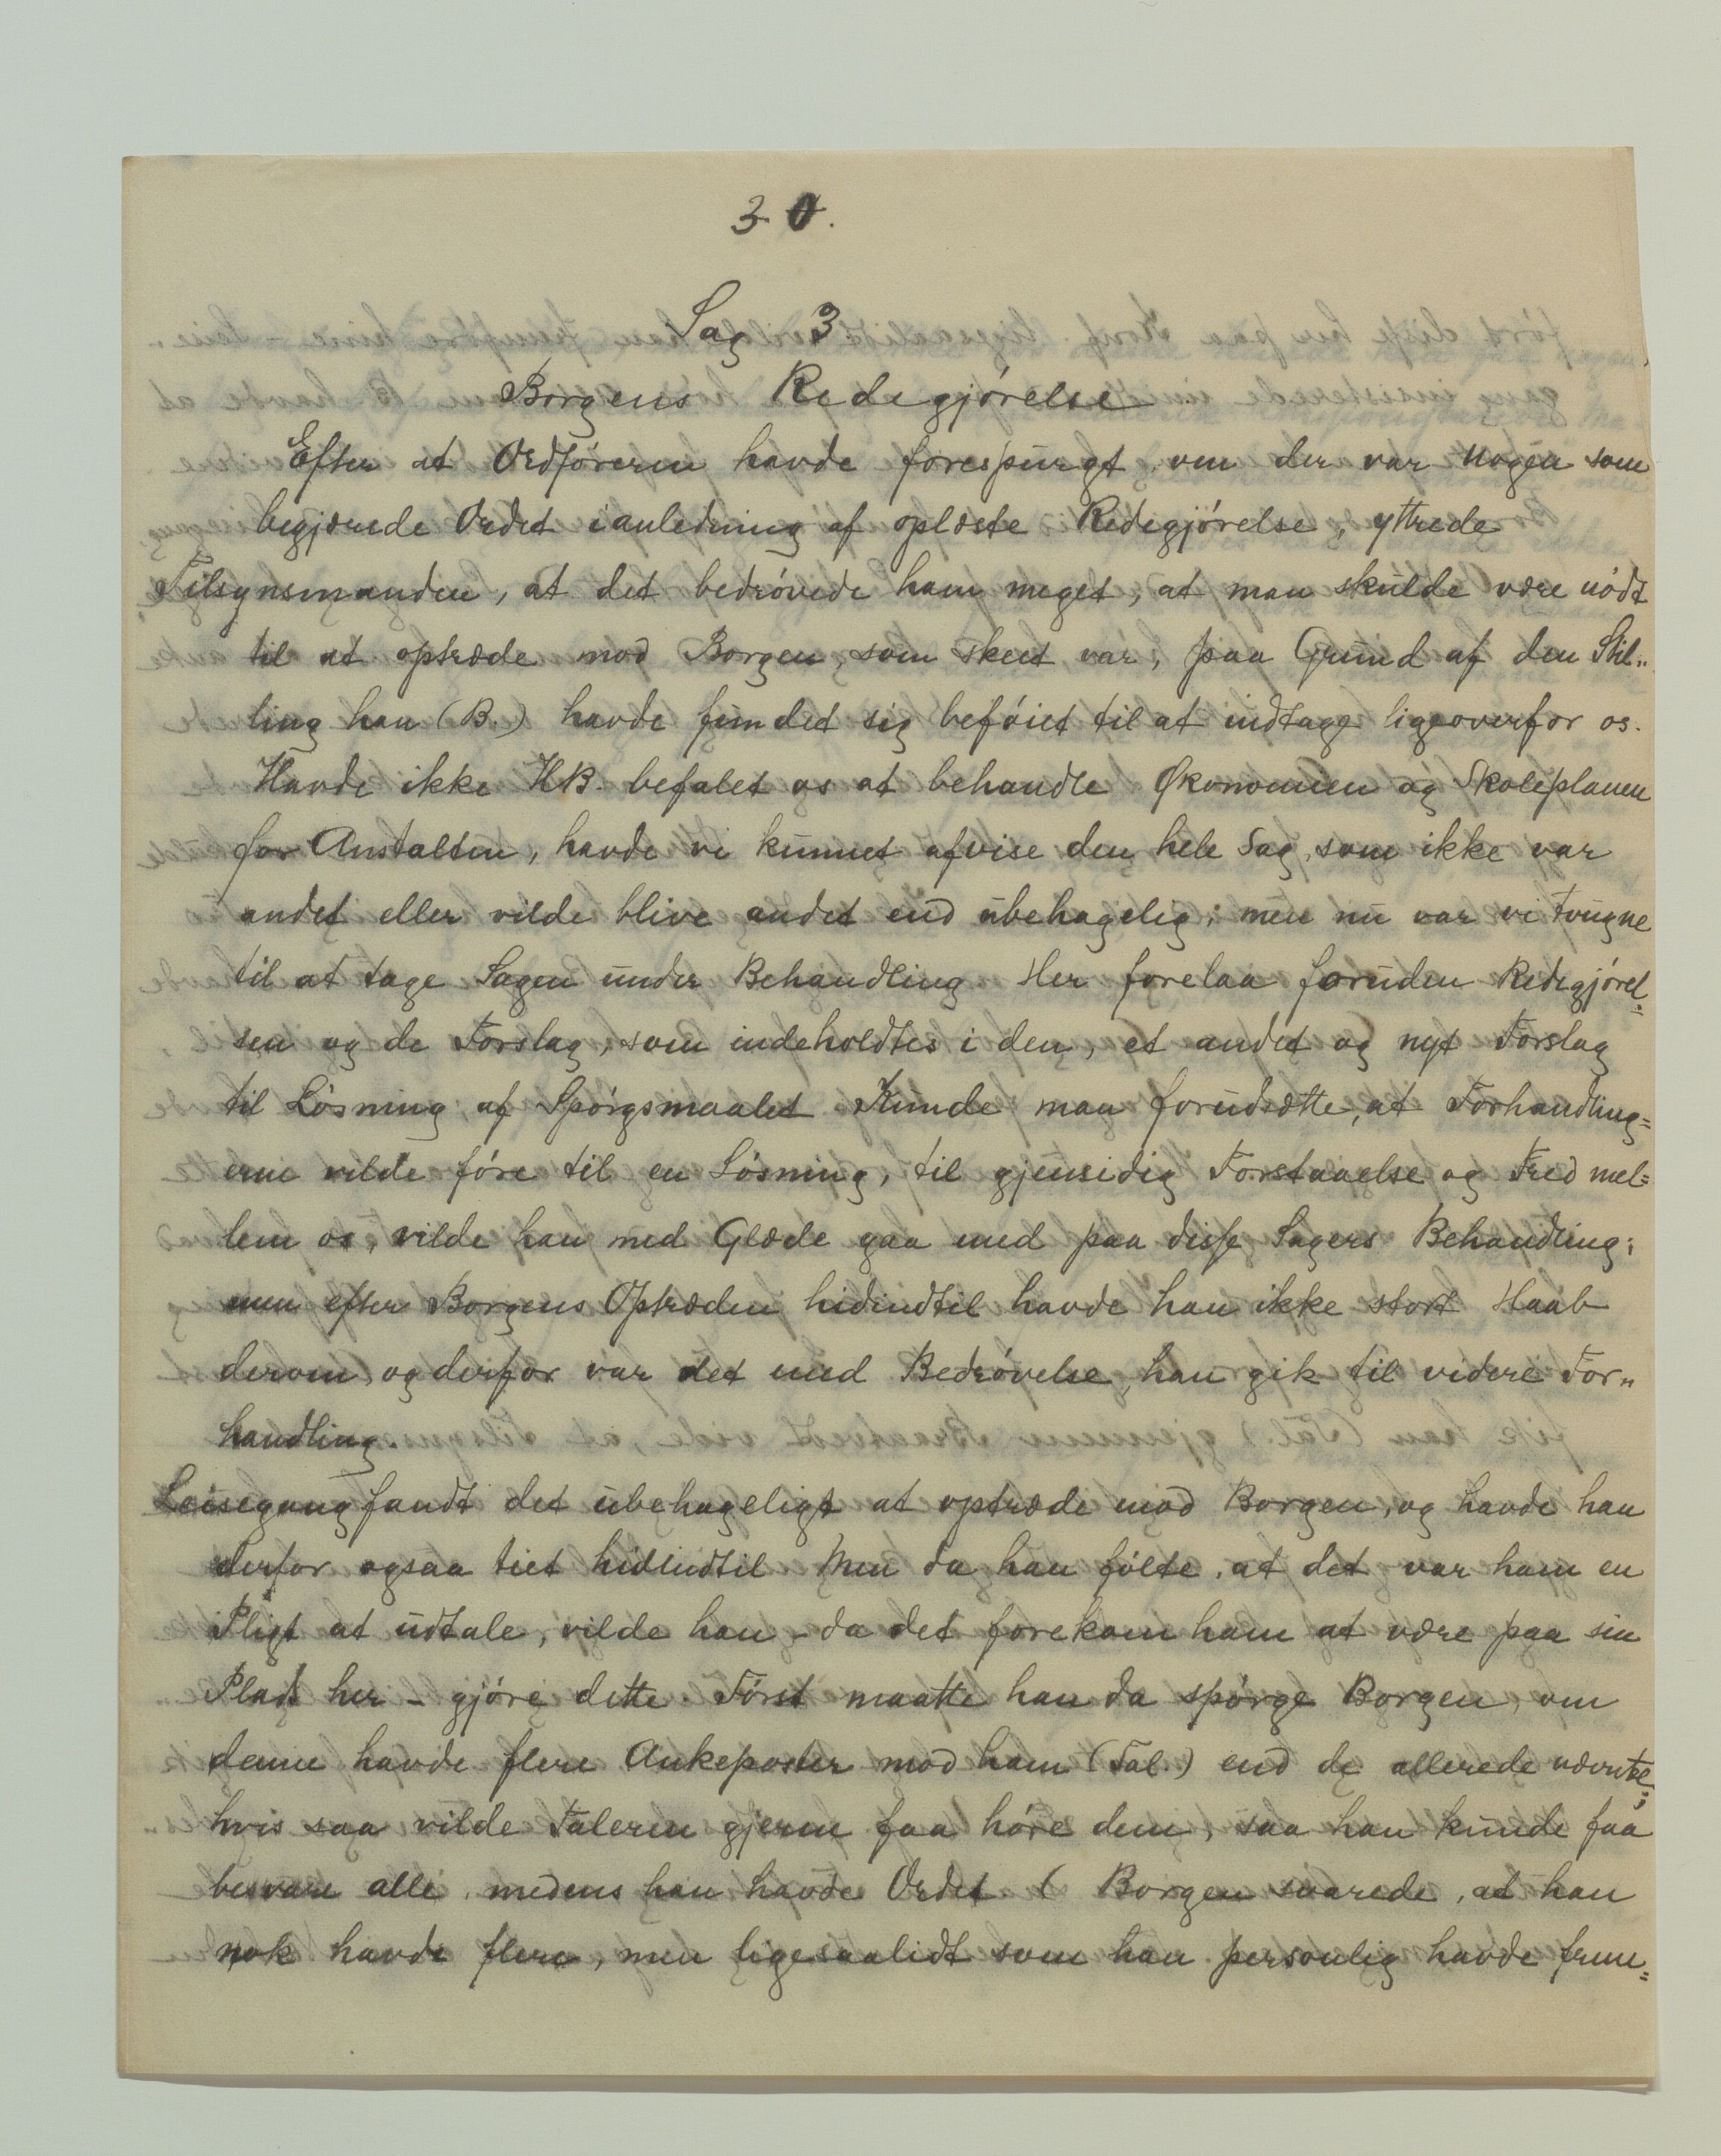 30.
Sag 3
Borgens Redegjörelse
Efter at Ordföreren havde forespurgt om der var nogen som
begjærede Ordet ianledning af oplæste Redegjörelse, yttrede
Tilsynsmanden, at det bedrövede ham meget, at man skulde være nödt
til at optræde mod Borgen, som skeet var, paa Grund af den Stil„
ling han (B.) havde fundet sig beföiet til at indtage ligeoverfor os.
Havde ikke HB. befalet os at behandle Økonomien og Skoleplanen
for Anstalten, havde vi kunnet afvise den hele Sag, som ikke var
andet eller vilde blive andet end ubehagelig; men nu var vi tvugne
til at tage Sagen under Behandling. Her forelaa foruden Redegjörel=
sen og de Forslag, som indeholdtes i den, et andet og nyt Forslag
til Lösning af Spörgsmaalet. Kunde man forudsætte, at Forhandling=
erne vilde före til en Lösning, til gjensidig Forstaaelse og Fred mel=
lem os, vilde han med Glæde gaa med paa disse Sagers Behandling;
men efter Borgens Optræden hidindtil havde han ikke stort Haab
derom, og derfor var det med Bedrövelse, han gik til videre For„
handling.
Leisegang fandt det ubehageligt at optræde mod Borgen, og havde han
derfor ogsaa tiet hidindtil. Men da han fölte, at det var ham en
Pligt at udtale, vilde han - da det forekom ham at være paa sin
Plads her - gjöre dette. Först maatte han da spörge Borgen, om
denne havde flere Ankeposter mod ham (Tal.) end de allerede nævnte;
hvis saa vilde Taleren gjerne faa höre dem, saa han kunde faa
besvare alle, medens han havde Ordet ( Borgen svarede, at han
nok havde flere, men ligesaalidt som han personlig havde frem=